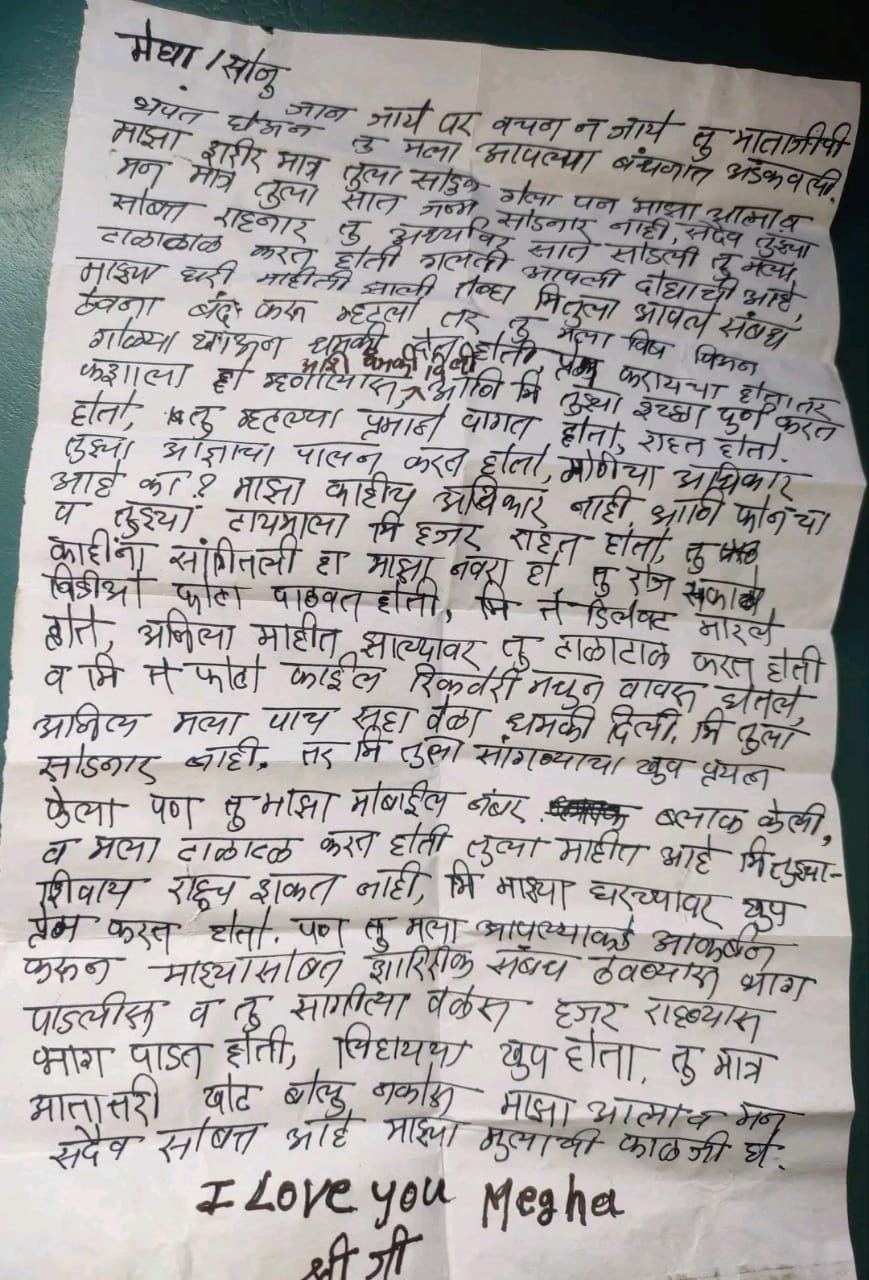 मेघा / सोनु
जान जाये पर वचन न जाये तु माताजीची
शपत घेऊन तु मला आपल्या बंधनात अडकवली.
माझा शरीर मात्र तुला सोडुन गेला पन माझा आत्मा व
मन मात्र तुला सात जन्म सोडनार नाही, सदैव तुझ्या
सोबत राहनार तु अर्ध्यावर साते सोडली तु मला
टाळाळाळ करत होती गलती आपली दोघाची आहे,
माझ्या घरी माहीती झाली तेव्हा मि तुला आपले संबध
ठेवना बंद करू म्हटलो तर तु मला विष पिऊन
गोळ्या खाऊन धमकी देत होती, प्रेम करायचा होता तर
कशाला हो म्हणाल्यास अशी धमकी दिली आनि मि तुझ्या इच्छा पुर्ण करत
होतो, तु म्हटल्या प्रमाने वागत होतो, राहत होतो.
तुझ्या आज्ञाचा पालन करत होतो, मांगेचा अधिकार
आहे का? माझा काहीच अधिकार नाही आनि फोनचा
व तुझ्या टायमाला मि हजर राहत होतो, तु
काहींना सांगितली हा माझा नवरा हो तु रोज सकाळ
विडीओ फोटो पाठवत होती, मि ते डिलेक्ट मारले
होते, अनिला माहीत झाल्यावर तु टाळाटाळ करत होती
व मि ते फोटो फाईल रिकवेरी मधुन वावस घेतले,
अनिल मला पाच सहा वेळा धमकी दिली. मि तुला
सोडनार नाही. तर मि तुला सांगण्याचा खुप प्रयत्न
केला पण तु माझा मोबाईल नंबर ब्लाक केली,
व मला टाळाटळ करत होती तुला माहीत आहे मि तुझ्या-
शिवाय राहुच शकत नाही, मि माझ्या घरच्यावर खुप
प्रेम करत होतो. पण तु मला आपल्याकडे आकर्षन
करून माझ्यासोबत शारिरीक संबध ठेवण्यास भाग
पाडलीस व तु सांगील्या वेळेस हजर राहण्यास
भाग पाडत होती, लिहायचा खुप होता, तु मात्र
आतातरी खोट बोलु नकोस माझा आत्मा व मन
सदैव सोबत आहे माझ्या मुलाची काळजी घे.
I Love you Megha
श्री जी